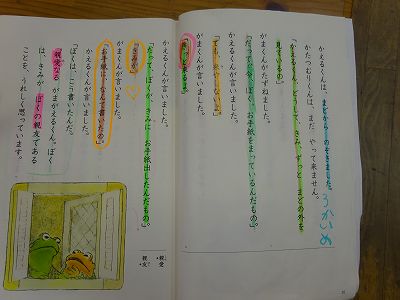 がまくんは、まどからのぞきました。
かたつむりくんは、まだ、やって来ません。
「かえるくん、どうして、きみ、ずっと、まどの外を
見ているの。」
がまくんがたずねました。
「だって、今、ぼく、お手紙をまっているんだもの。」
かえるくんが言いました。
「でも、来やしないよ。」
がまくんが言いました。
「きっと来るよ。」
かえるくんが言いました。
「だって、ぼくが、きみにお手紙出したんだもの。」
「きみが。」
がまくんが言いました。
「お手紙に、なんて書いたの。」
かえるくんが言いました。
「ぼくは、こう書いたんだ。
『親愛なるがまがえるくん。ぼく
は、きみが、ぼくの親友である
ことを、うれしく思っています。
親愛
親友